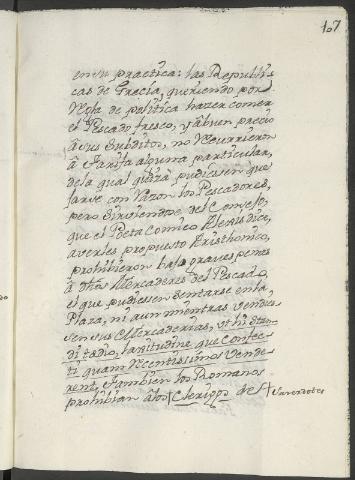 107
en su practica: las Republi-
cas de Grecia, queriendo por
Regla de politica hazer comer
el Pescado fresco, y á buen precio
à sus subditos, no recurrieron
à Tarifa alguna particular,
de la qual quizá pudiesen que
jarse con razon los Pescadores,
pero sirviendose del Consejo,
que el Poeta Comico Alexis dice,
averles propuesto Aristhonico,
prohibieron bajo graves penas
a dhõs Mercaderes del Pescado,
el que pudiesen sentarse en la
Plaza, ni aun mientras vendie
sen sus Mercaderias, ut hi stan-
di tædio, lasitudine que confec-
ti quam recentissimos vende
rent, tambien los Romanos
prohibian à los + Clerigos de + Sacerdotes